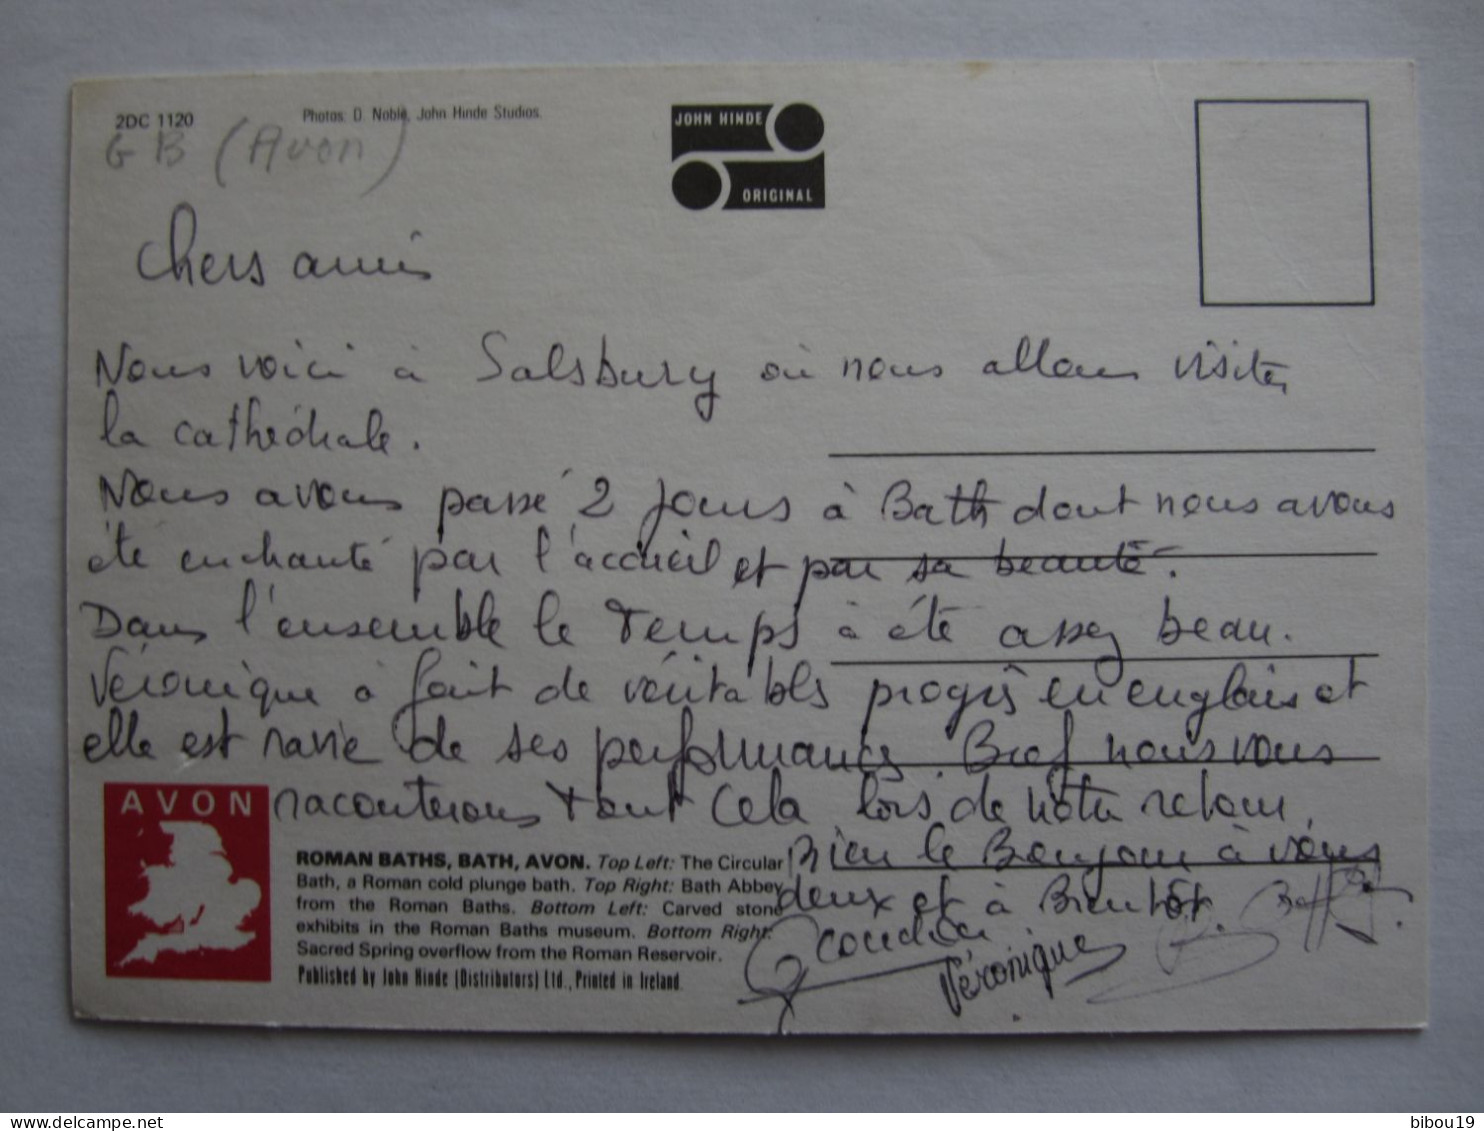 2DC 1120
Photos: D. Noble, John Hinde Studios.
JOHN HINDE
ORIGINAL
GB (Avon)
Chers amis
Nous voici à Salsbury où nous allons visiter
la cathédrale.
Nous avons passé 2 jours à Bath dont nous avons
été enchanté par l'accueil et par sa beauté.
Dans l'ensemble le temps à été assez beau.
Véronique à fait de véritables progrès en englais et
elle est ravie de ses performances. Bref nous vous
raconterons tout cela lors de notre retour.
Bien le Bonjour à vous
deux et à Bientôt
Véronique
AVON
ROMAN BATHS, BATH, AVON. Top Left: The Circular
Bath, a Roman cold plunge bath. Top Right: Bath Abbey
from the Roman Baths. Bottom Left: Carved stone
exhibits in the Roman Baths museum. Bottom Right:
Sacred Spring overflow from the Roman Reservoir.
Published by John Hinde (Distributors) Ltd., Printed in Ireland.
bibou19
www.delcampe.net